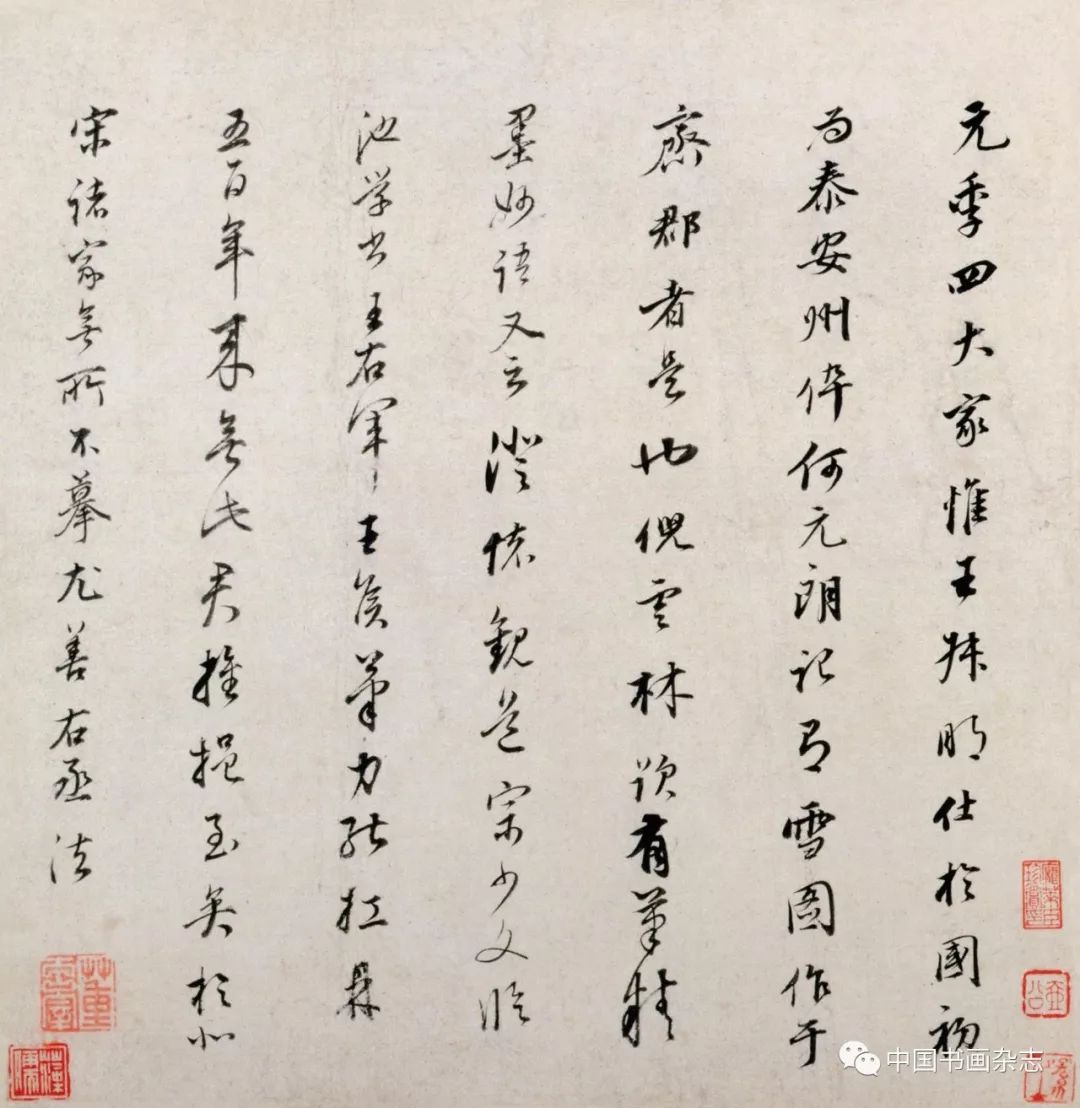 元季四大家惟王叔明仕於國初
为泰安州倅何元朗记有雪图作于
齋郡者是也倪雲林跋有筆精
墨妙語又云澄懷觀道宗少文臨
池学书王右军〻王侯筆力能扛鼎
五百年来無此君推挹至矣於北
宋諸家無所不摹尤善右丞法
董玄宰
中国书画杂志